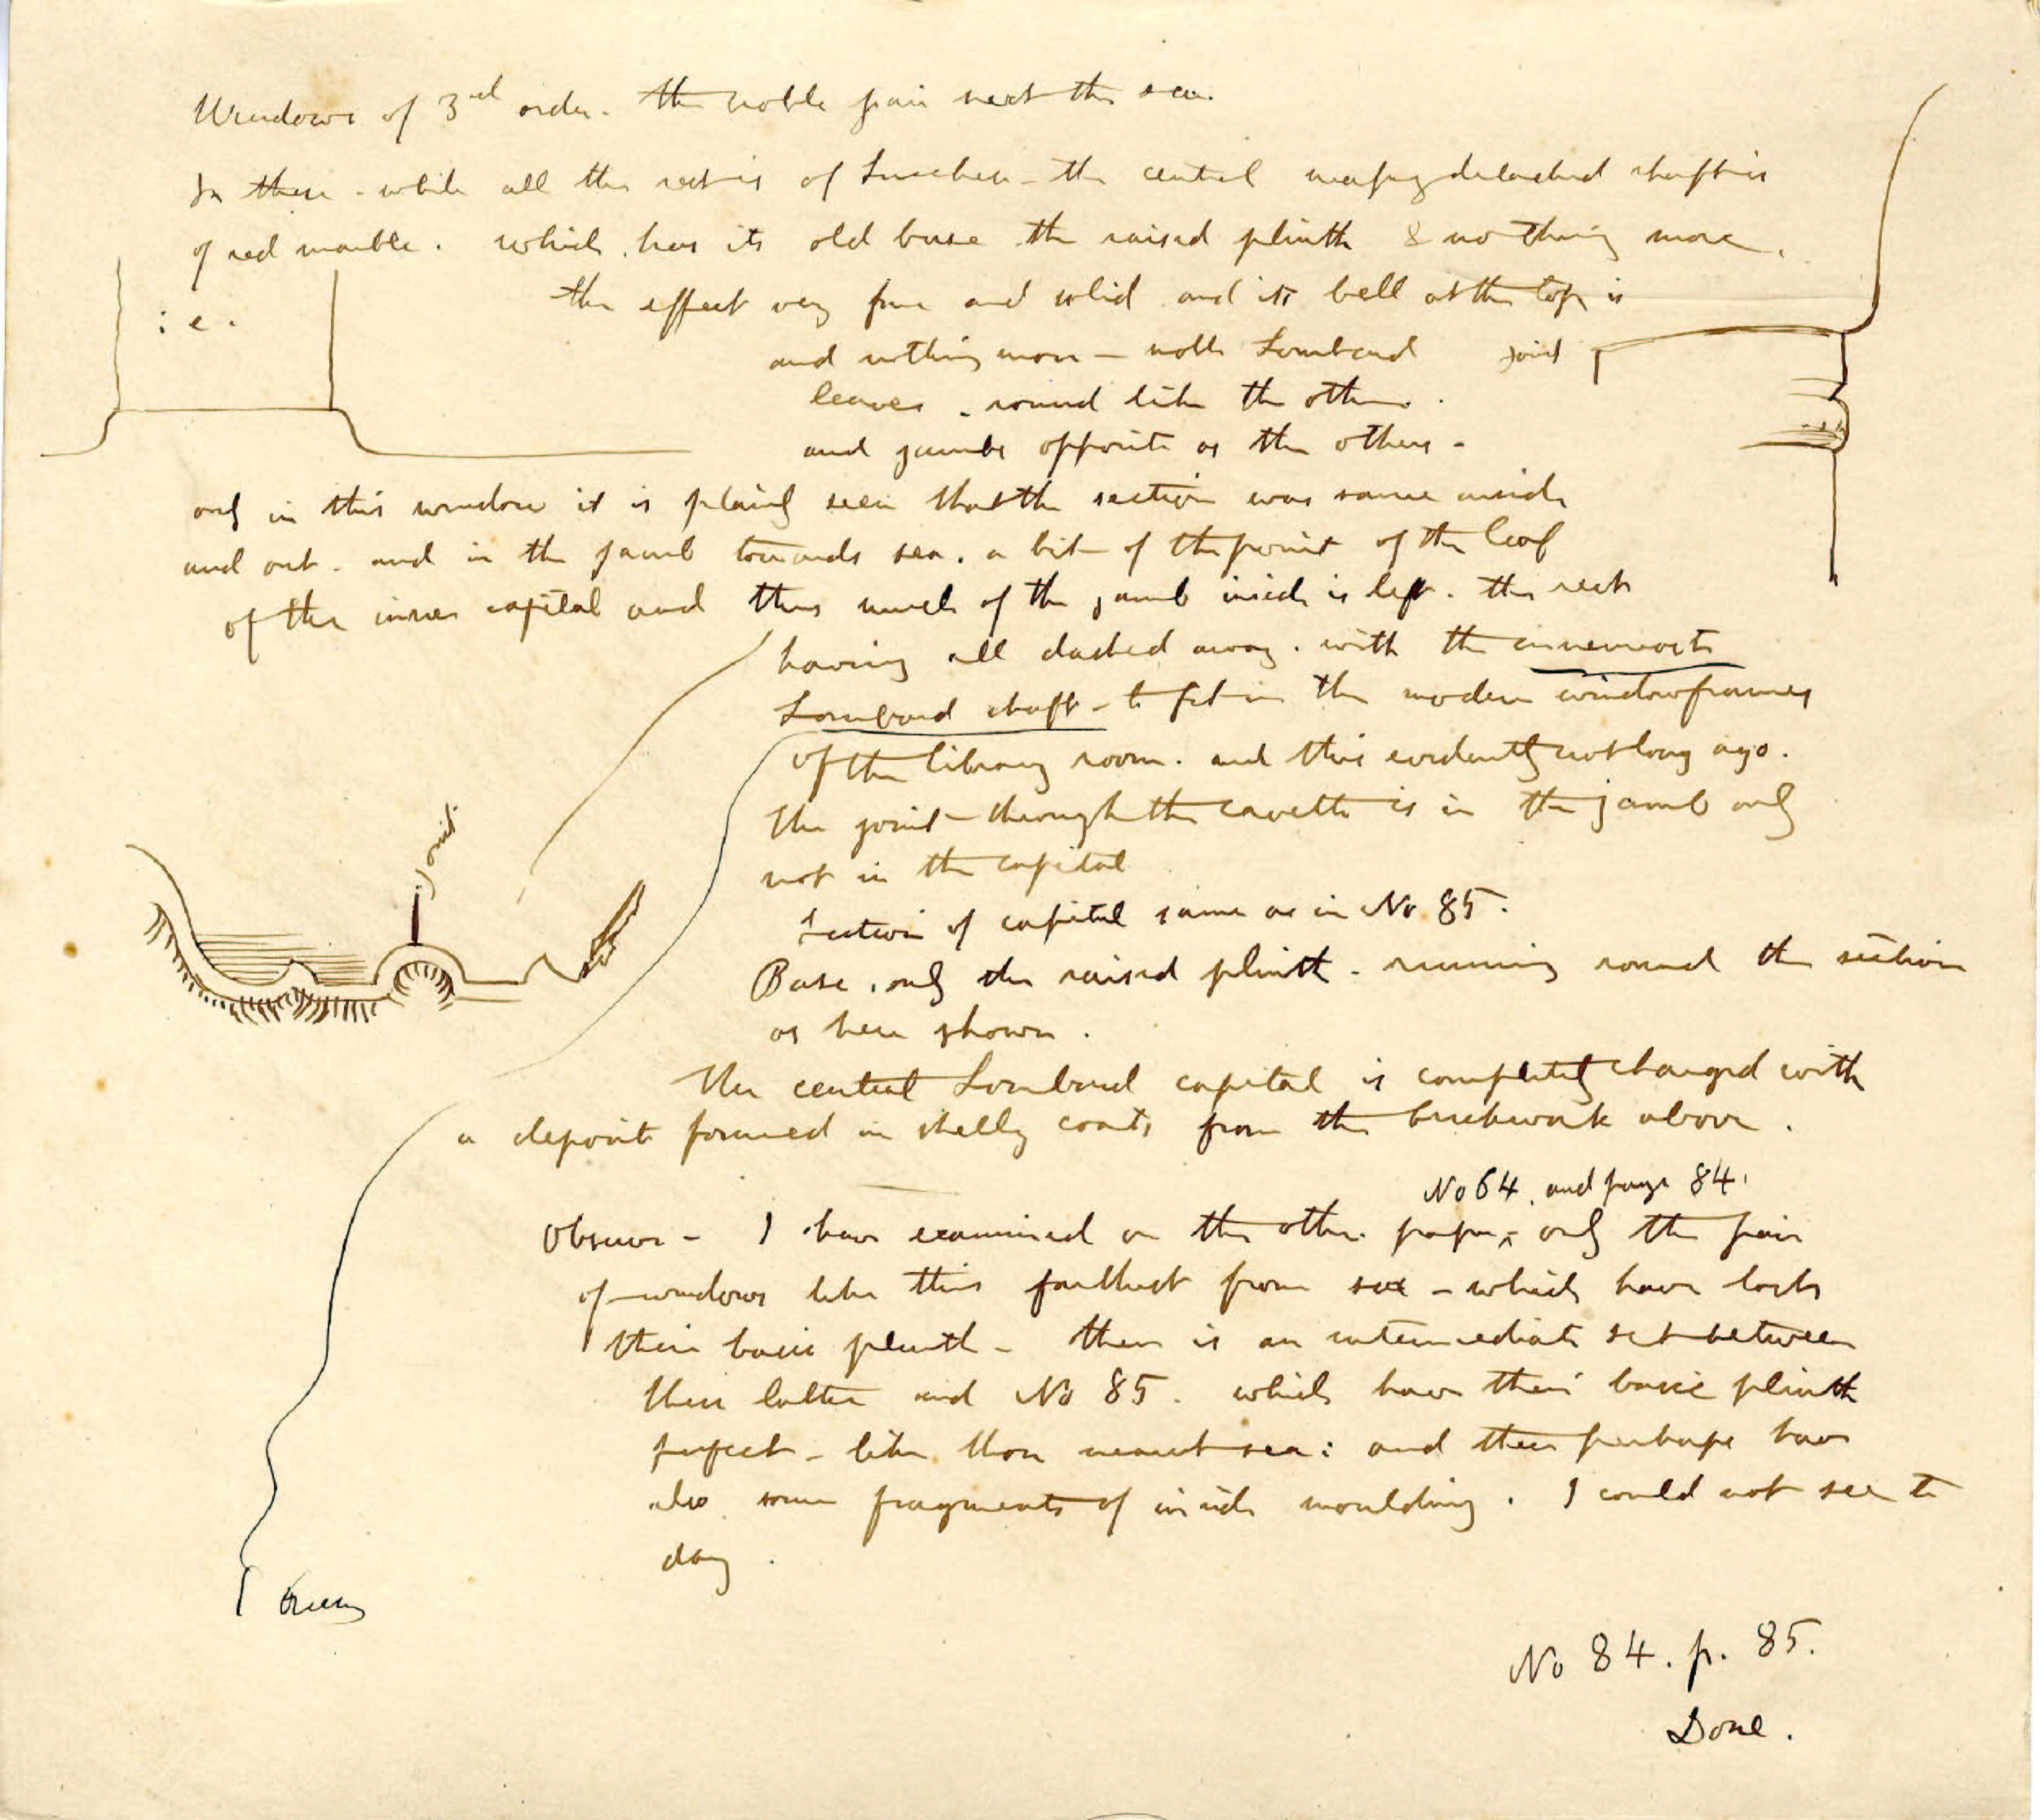 Windows of 3rd order. The noble pair next the sea.
In these - while all the rest is of - the central detached shaft is
of red marble. which has its old base the raised plinth & nothing more.
i e.
the effect very fine and solid and its bell at the top is
and nothing more - noble Lombard
joint
leaves. round like the other.
and jambs opposite as the others -
only in this window it is plainly seen that the section was same inside
and out. and in the jamb towards sea. a bit of the point of the leaf
of the inner capital and thus much of the jamb inside is left. the rest
having all dashed away. with the innermost
Lombard shaft - to fit in the modern windowframes
of the library room. and this evidently not long ago.
The joint through the cavetto is in the jamb only
not in the capital
joint.
Section of capital same as in No 85.
Base. only the raised plinth - running round the section
as here shown.
The central Lombard capital is completely changed with
a deposit formed in shelly coats from the brickwork above.
No 64. and page 84.
Observe - I have examined on the other paper ^ only the pair
of windows like this farthest from sea - which have lost
their basic plinth - there is an intermediate set between
these latter and No 85. which have their basic plinth
perfect - like those nearest sea: and these perhaps have
also some fragments of inside moulding. I could not see to
day.
No 84. p. 85.
Done.